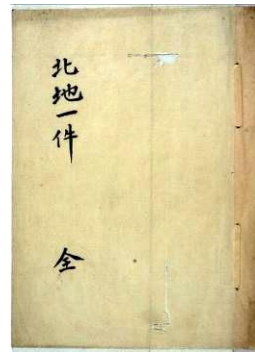 北地一件 全